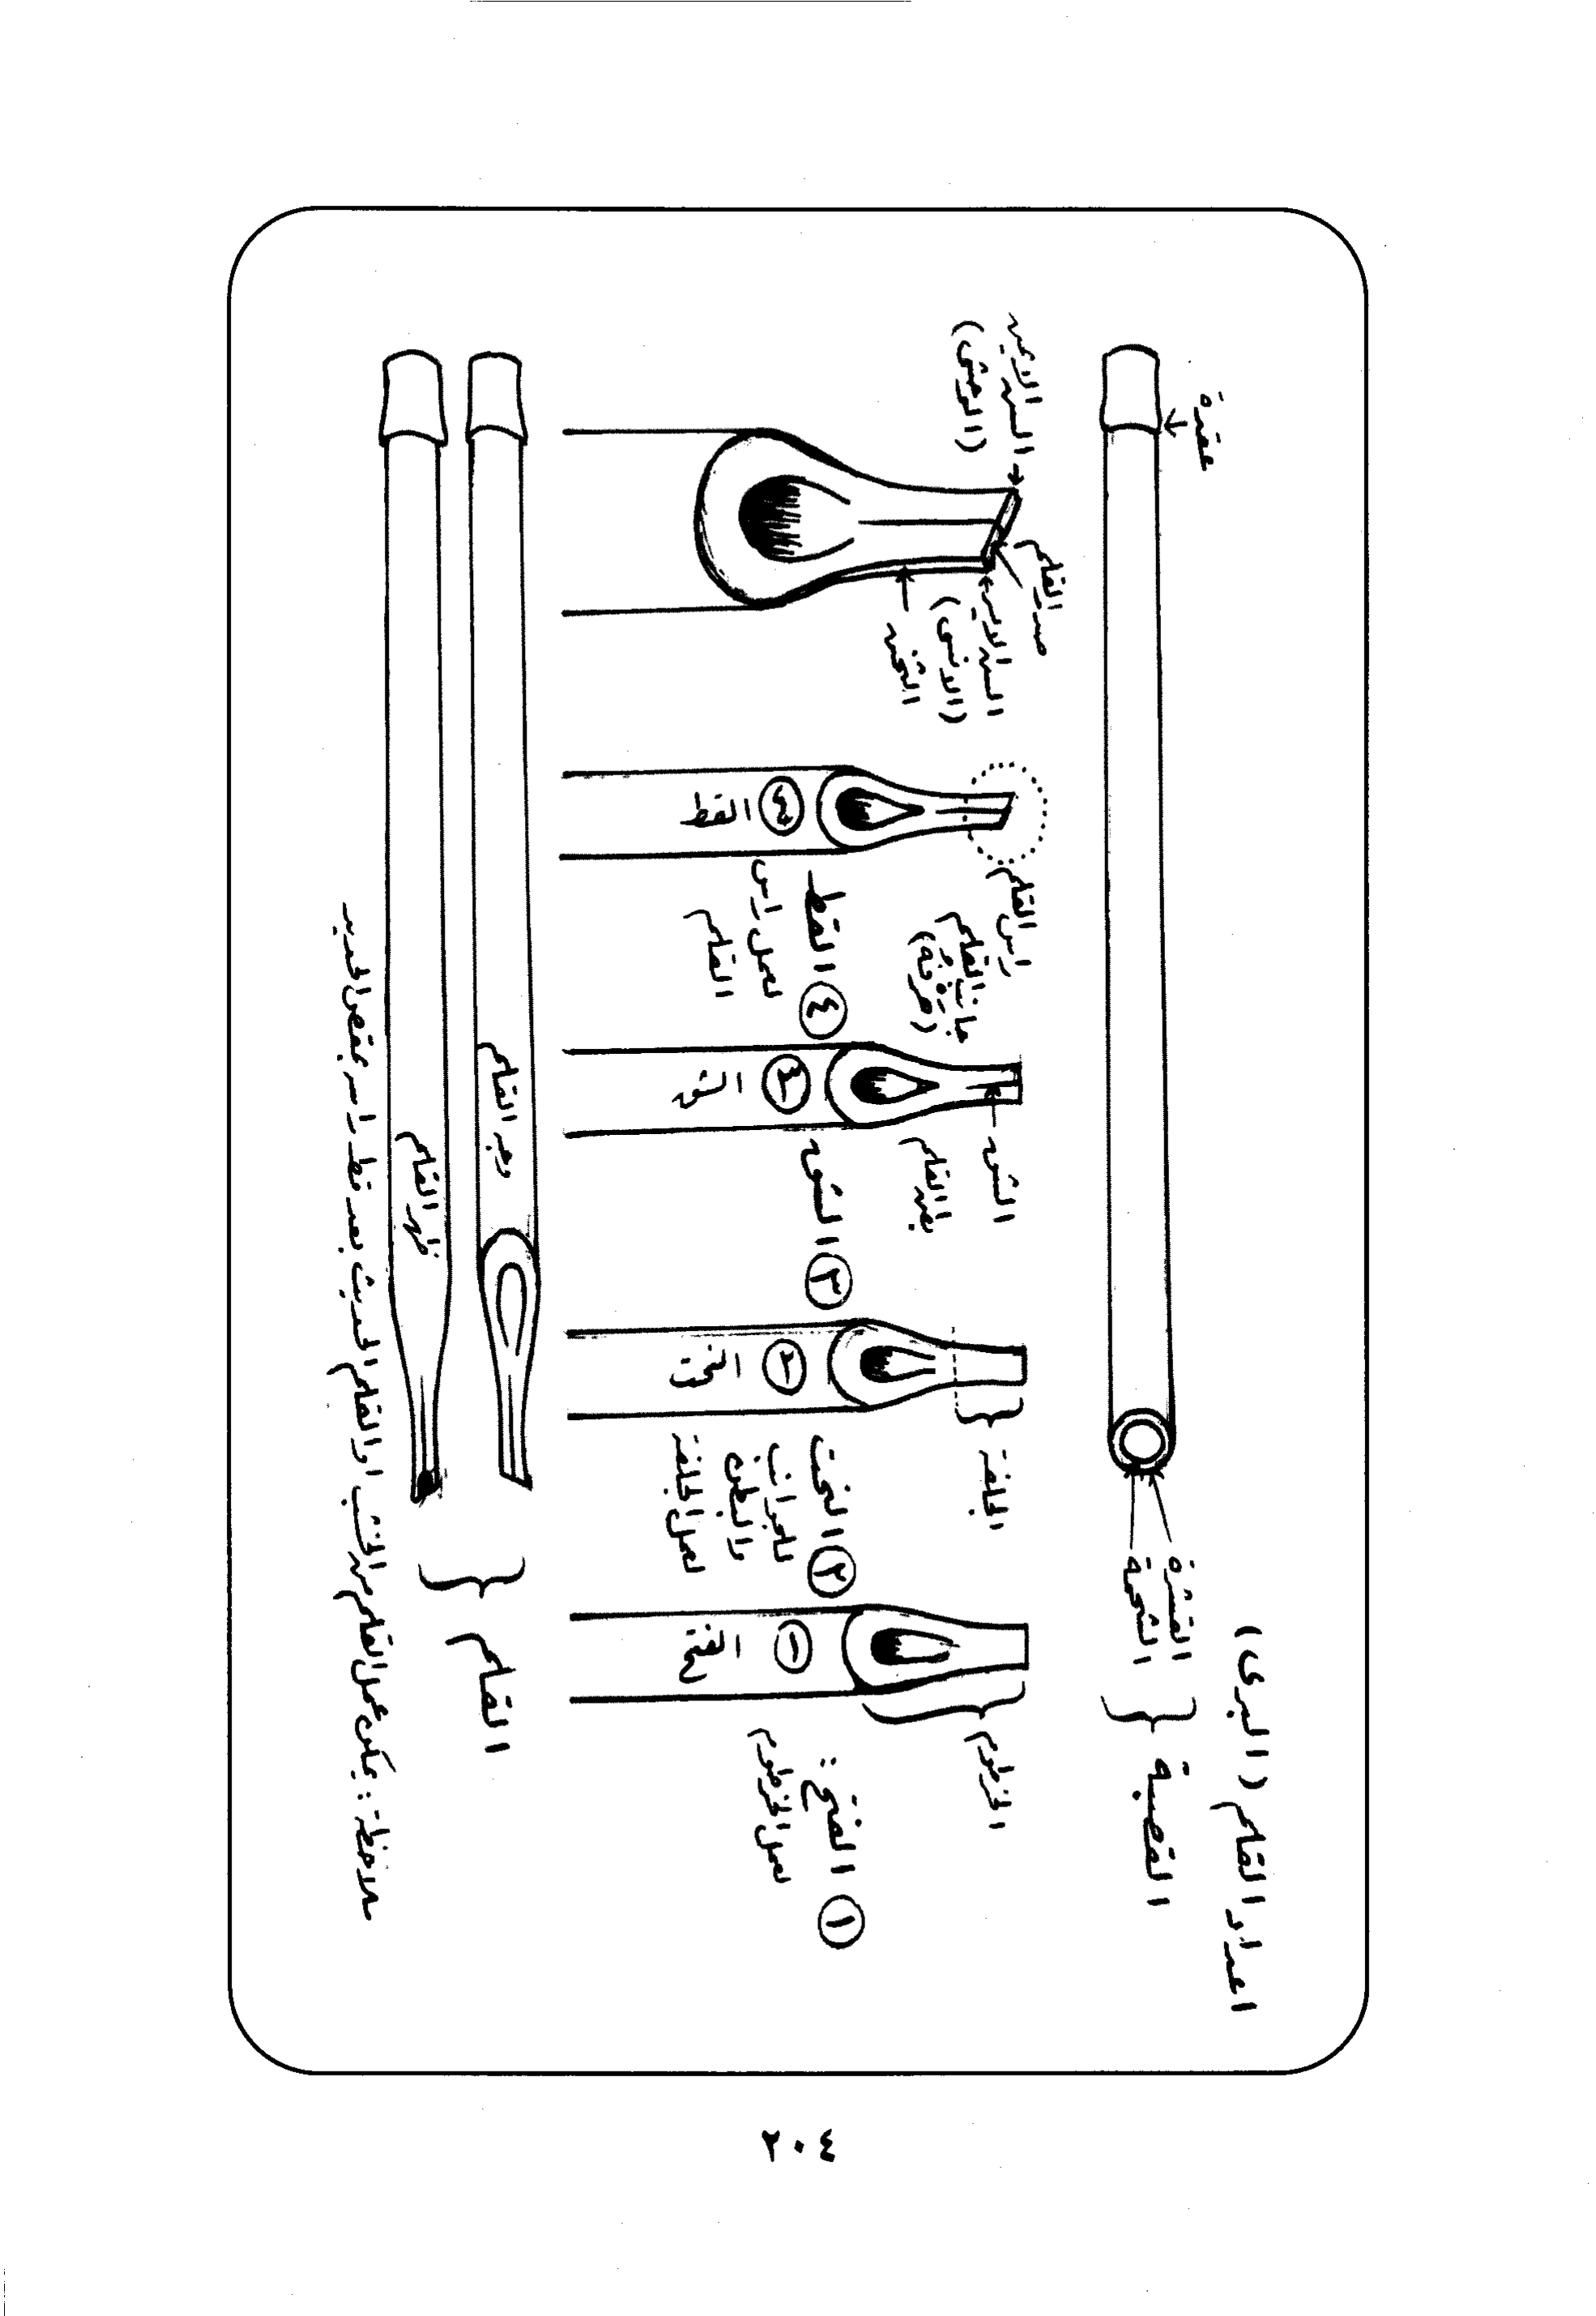 اعداد القلم (البرى)
القصبة
القشرة
الشحمة
عقدة
① الفتح :
لعمل الخرطوم
الخرطوم
① الفتح
② النحت
للجوانب
والبطن
لعمل الجلفة
الجلفة
② النحت
③ الشق
الشق
③ الشق
④ القط
لعمل راس
القلم
راس القلم
جانبا القلم
④ القط
صدر القلم
السن الايمن
(الوحشى)
السن الايسر
(الانسى)
القلم
وجه القلم
ظهر القلم
ملاحظة : يمكن عمل القلم من الخشب او القلم الحديث بعد قط راسه بمقص الحديد
٢٠٤